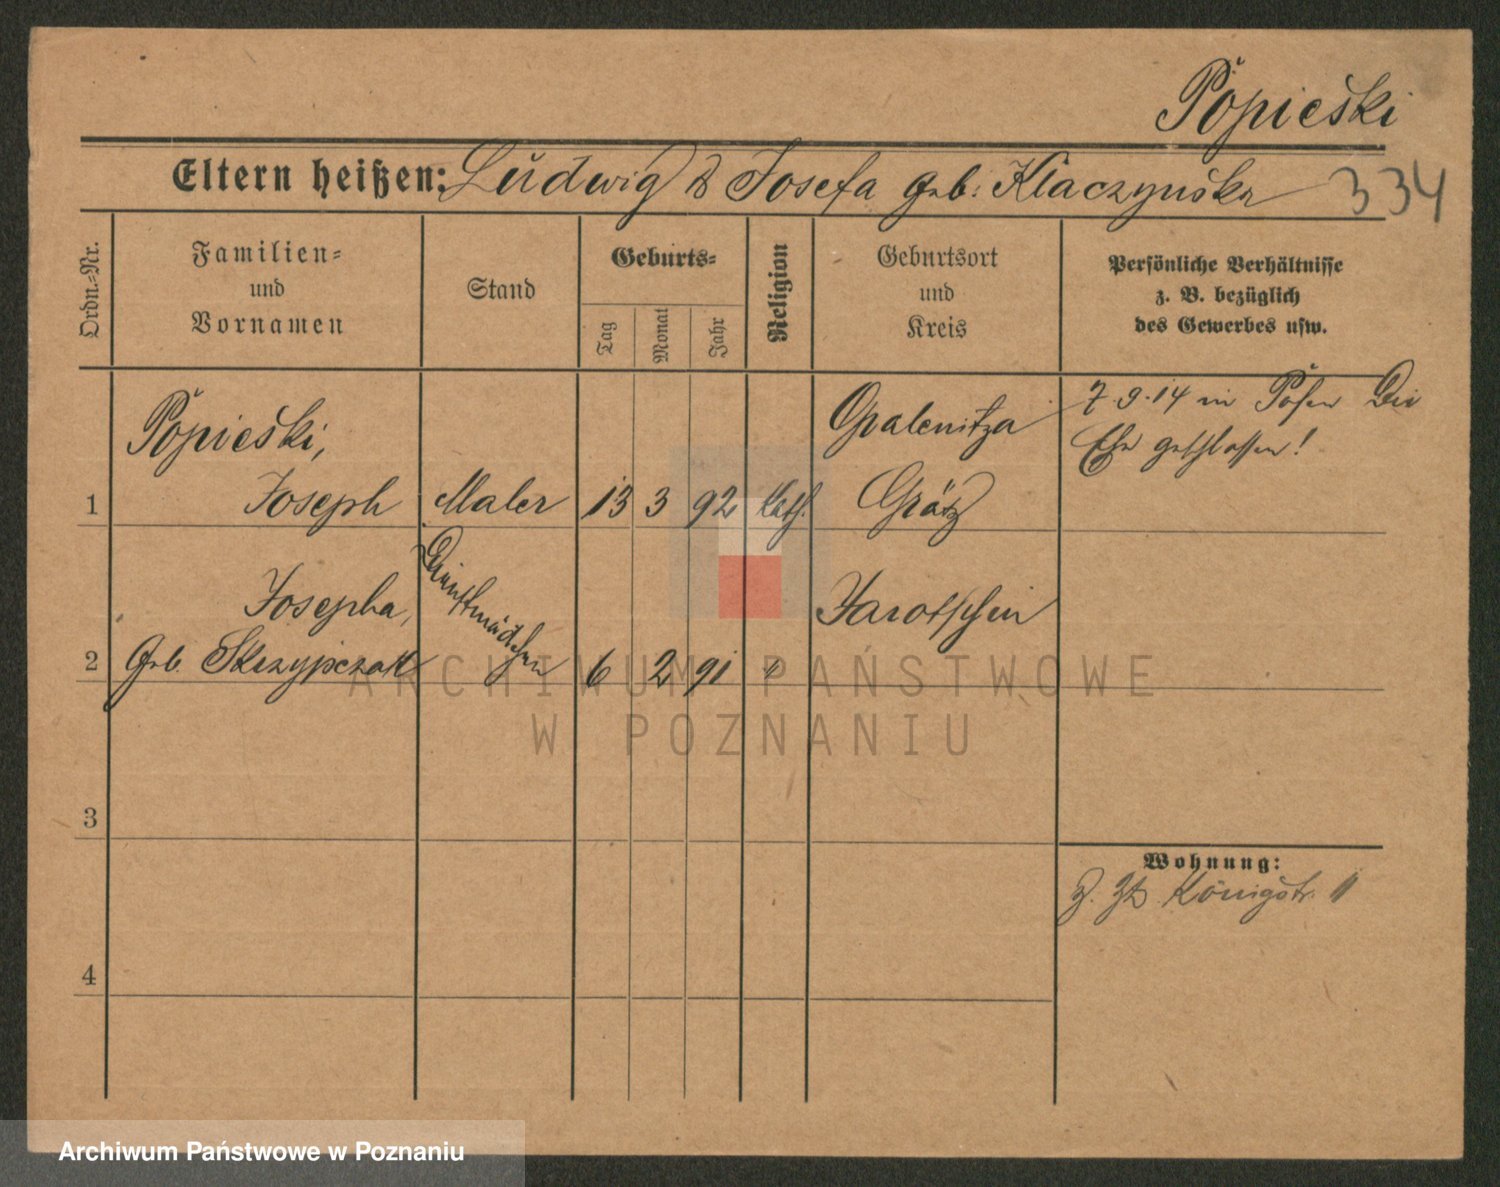 Popieski
Eltern heißen: Ludwig & Josefa geb. Klaczynska
334
Ordn.-Nr.
Familien-
und
Vornamen
Stand
Geburts-
Tag
Monat
Jahr
Religion
Geburtsort
und
Kreis
Persönliche Verhältnisse
z. B. bezüglich
des Gewerbes usw.
Popieski,
1 Joseph Maler 13 3 92 kath.
Opalenitza
Grätz
7.9.14 in Posen die
Ehe geschlossen!
Josepha,
2 geb. Skrzypczak Dienstmädchen 6 2 91 "
Jarotschin
3
4
Wohnung:
z. Zt. Königstr. 11
ARCHIWUM PAŃSTWOWE
W POZNANIU
Archiwum Państwowe w Poznaniu